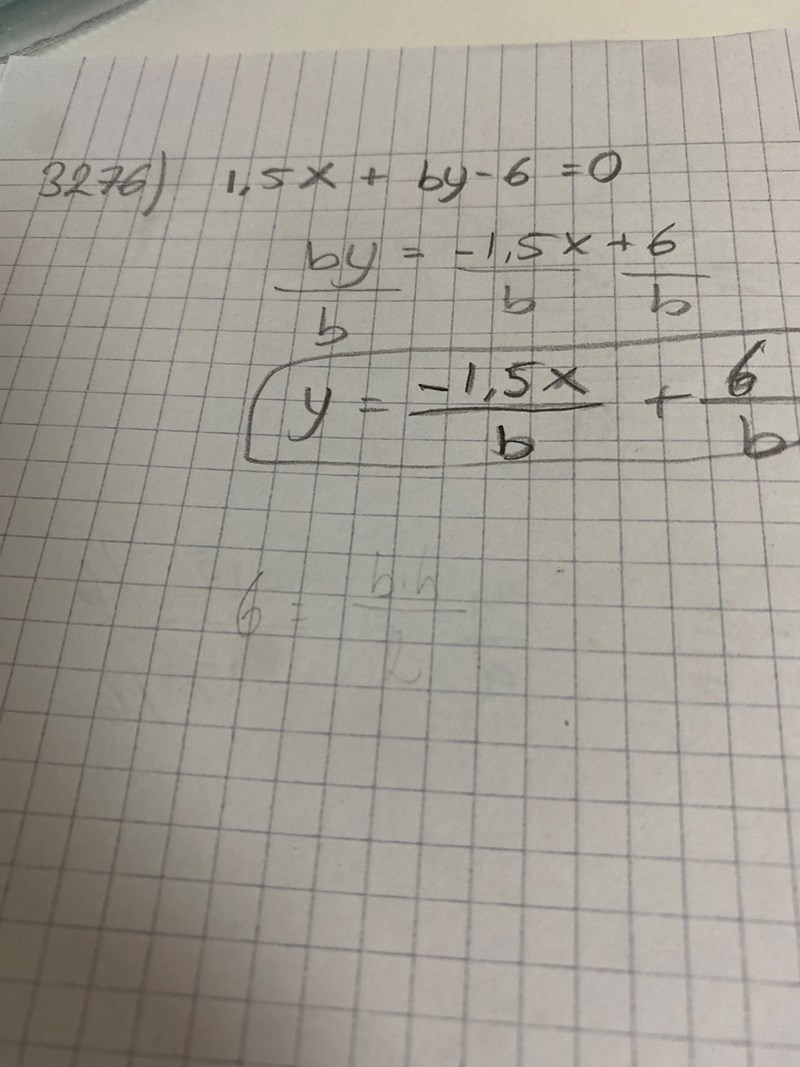 3276) 1,5x + by - 6 = 0
by/b = -1,5x/b + 6/b
y = -1,5x/b + 6/b
6 = b·h/2